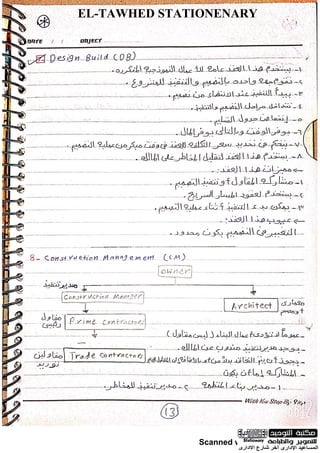 EL-TAWHED STATIONENARY
DATE / / OBJECT
Design Build (DB)
١- يستخدم هذا العقد عامة للأعمال النموذجية المتكررة.
٢- تقوم جهة واحدة بالتصميم والتنفيذ للمشروع.
٣- يبدأ التنفيذ عند الانتهاء من تصميم.
٤- تتداخل مراحل التصميم والتنفيذ.
٥- جدول
٦- يوفر الوقت وبالتالي يوفر المال.
٧- يتحكم في تحديد سعر التكلفة في وقت مبكر من عملية التصميم.
٨- يستخدم هذا العقد لتقليل المخاطر على المالك.
مميزات هذا العقد:
١- مشاركة المقاول أو تنفيذ التصميم.
٢- يستخدم لعقود المسار السريع.
٣- يمكن بدء التنفيذ أثناء عملية التصميم.
عيوب هذا العقد:
التغيير في التصميم يكون محدود.
8- Construction Management (CM)
Owner
مدير تنفيذ
Construction Manager
Architect
معماري
أو مصمم
مقاول
رئيسي
Prime Contractors
مقاولين
توريد
Trade Contractors
عموماً أعمال البناء (ليس مقاول)
يوجد مدير تنفيذ مندوب عن المالك
يجوز
المشاركة إما أن يكون
١- مدير بناء المنظمة ٢- مدير تنفيذ للمخاطر.
With You Step By Step
13
Scanned
مكتبة التوحيد
Stationery للتصوير والطباعة
المساعيد الإدارى آخر شارع الإدارى